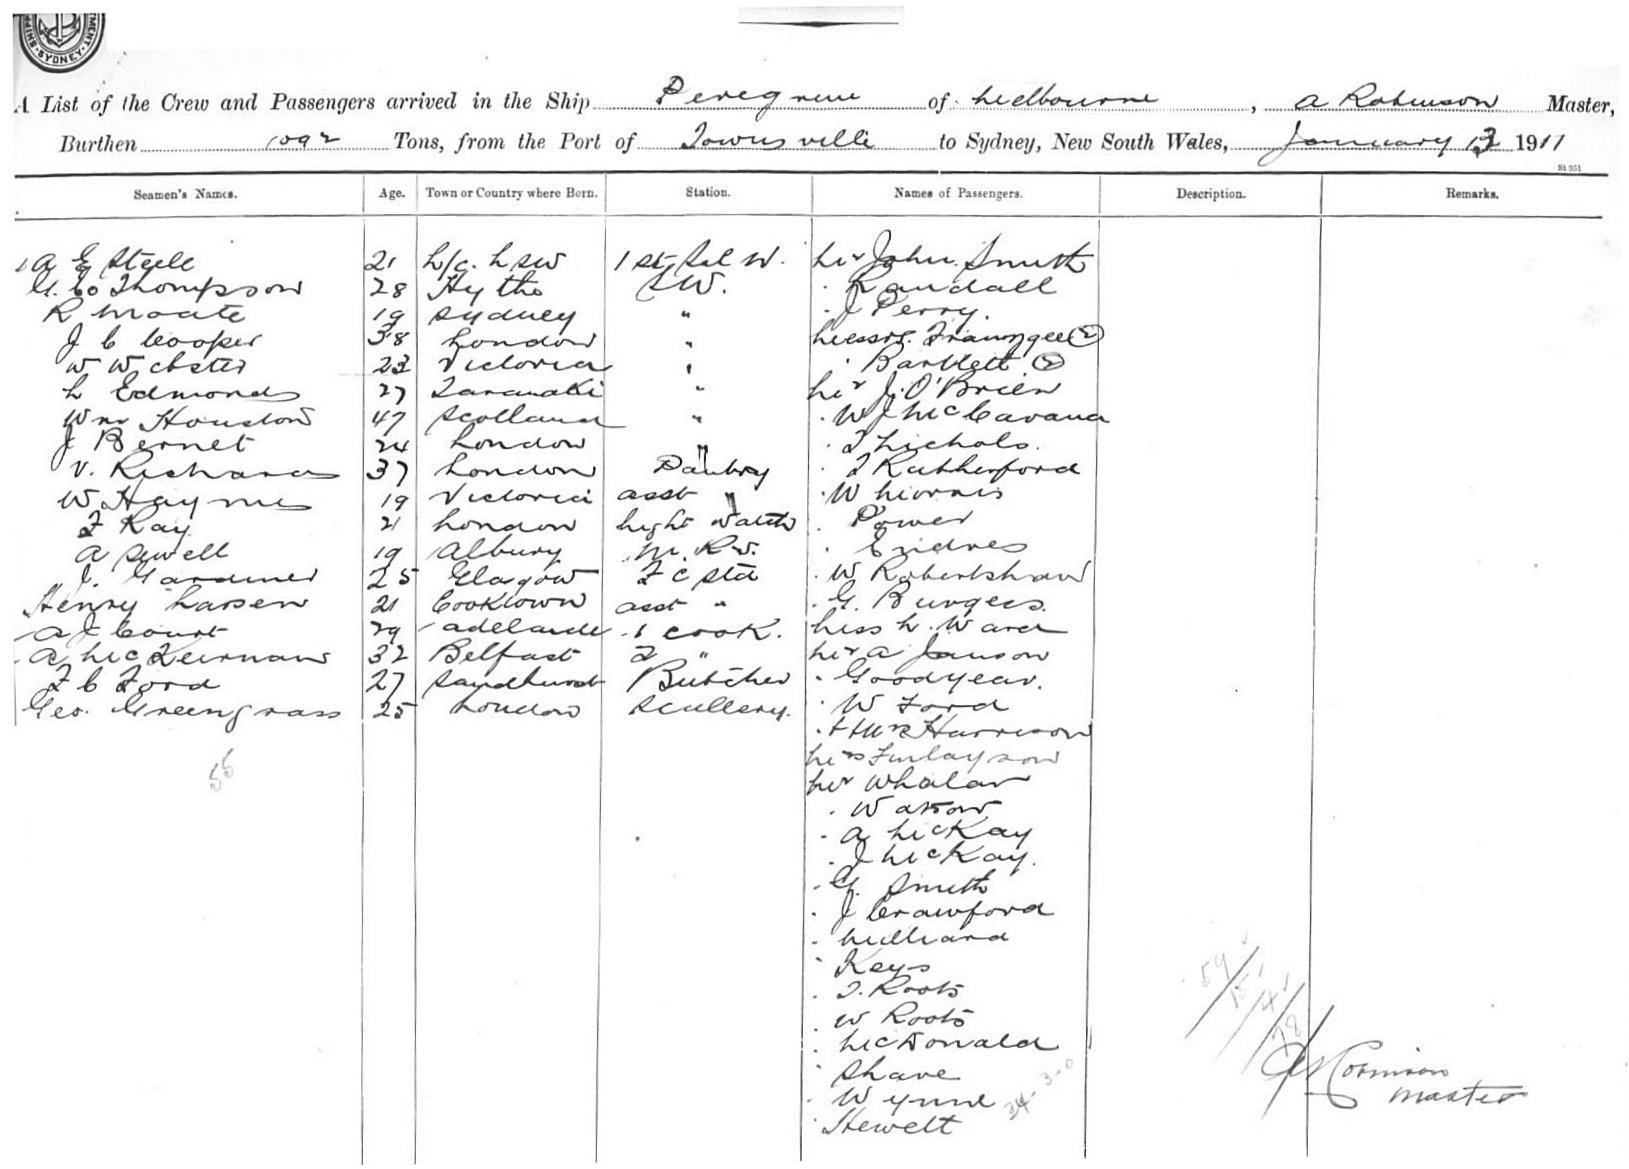 SYDNEY
A List of the Crew and Passengers arrived in the Ship Peregrine of Melbourne, A Robinson Master,
Burthen 1092 Tons, from the Port of Townsville to Sydney, New South Wales, January 13 1911
St 951
Seamen's Names. Age. Town or Country where Born. Station. Names of Passengers. Description. Remarks.
A E Steele 21 N/C. NSW 1st Sal W. Mr John Smith
G. Thompson 28 Hythe SW. " Randall
R Moate 19 Sydney " " J Perry.
J C Cooper 38 London " Messrs. (2)
W Webster 23 Victoria " " Bartlett (2)
L Edmonds 27 Taranaki " Mr J. O'Brien
Wm Houston 47 Scotland " " W J McCavana
J Bernet 24 London " " T Nichols.
V. Richards 37 London Pantry " T Rutherford
W Haymes 19 Victoria asst " " W Morris
F Kay 21 London Night Watch " Power
A Sewell 19 Albury M. R S. " Endres
J. Gardiner 25 Glasgow F C Std " W Robertshaw
Henry Larsen 21 Cooktown asst " " G. Burgess.
A J Court 29 Adelaide 1 Cook. Miss L. Ward
A McKeirnan 32 Belfast 2 " Mr A Janson
F C Ford 27 Sandhurst Butcher " Goodyear.
Geo. Greengrass 25 London Scullery. " W Ford
" + Mrs Harrison
Mrs Finlayson
55 Mr Whalan
" Watson
" A McKay
" J McKay.
" G. Smith
" J Crawford
" Milliard
" Keys
" T. Roots 59/15/4/78
" W Roots
" McDonald
" Shave A Robinson
" Wynne 34-3-0 Master
" Hewett